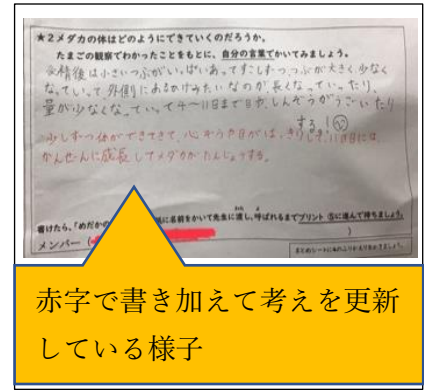 ★2メダカの体はどのようにできていくのだろうか。
たまごの観察でわかったことをもとに、自分の言葉でかいてみましょう。
受精後は小さいつぶがいっぱいあってすこしずつつぶが大きく少なく
なっていって外側にあるかけみたいなのが長くなっていったり、
量が少なくなっていって4〜11日まで目やしんぞうがうごいたり
する!
少しずつ体ができてきて、心ぞうや目がはっきりして、11日目には
かんぜんに成長してメダカがたんじょうする。
書けたら、「めだかの
紙に名前をかいて先生に渡し、呼ばれるまでプリント⑤に進んで待ちましょう。
メンバー ( )
赤字で書き加えて考えを更新
している様子